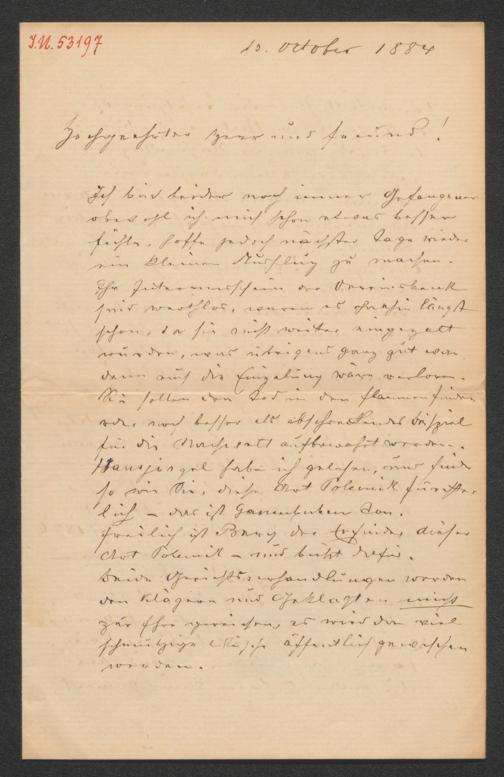 J.N. 53197
10. October 1884
Hochgeehrter Herr und Freund!
Ich bin leider noch immer Gefangener
obwohl ich mich schon etwas besser
fühle, hoffe jedoch nächster Tage wieder
ein kleinen Ausflug zu machen.
Ihr Interimsschein der Vereinsbank
sind werthlos, waren es ohnehin längst
schon, da sie nicht weiter eingezalt
wurden, was übrigens ganz gut war
denn auch die Einzalung wäre verloren.
Sie sollen den Tod in den Flammen finden
oder noch besser als abschreckendes Beispiel
für die Nachwelt aufbewahrt werden.
Hansjörgel habe ich gelesen, und finde
so wie Sie, diese Art Polemik fürchter
lich – das ist Gassenbuben Ton.
Freilich ist der Erfinder dieser
Art Polemik – und büßt dafür.
Beide Gerichtsverhandlungen werden
den Klägern und Geklagten nicht
zur Ehre gereichen, es wird da viel
schmutzige Wäsche öffentlich gewaschen
werden.